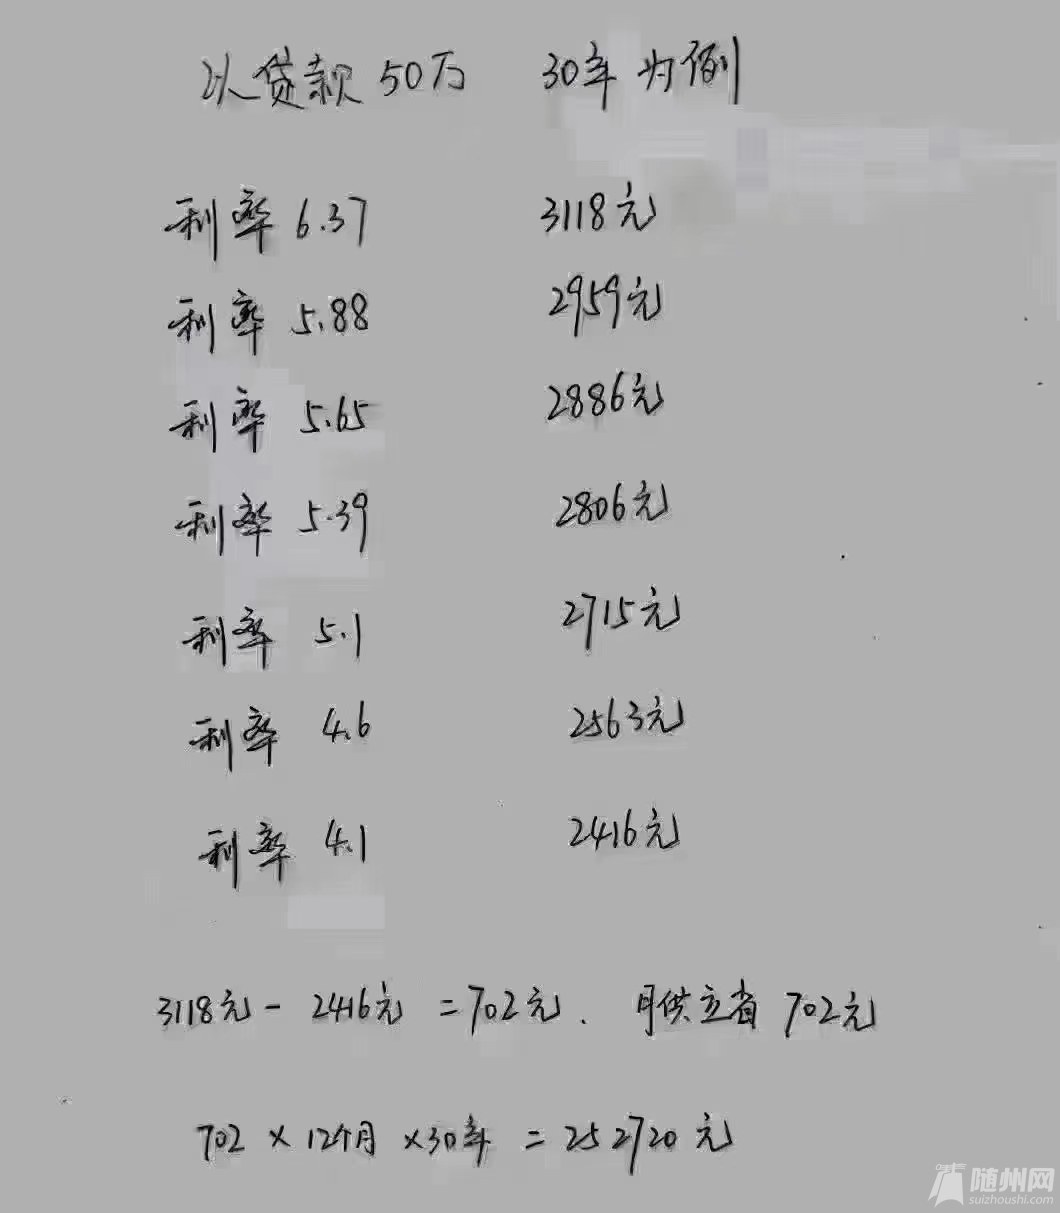 以贷款50万 30年为例
利率6.37 3118元
利率5.88 2959元
利率5.65 2886元
利率5.39 2806元
利率5.1 2715元
利率4.6 2563元
利率4.1 2416元
3118元-2416元=702元. 月供立省702元
702×12个月×30年=252720元
随州网
suizhoushi.com